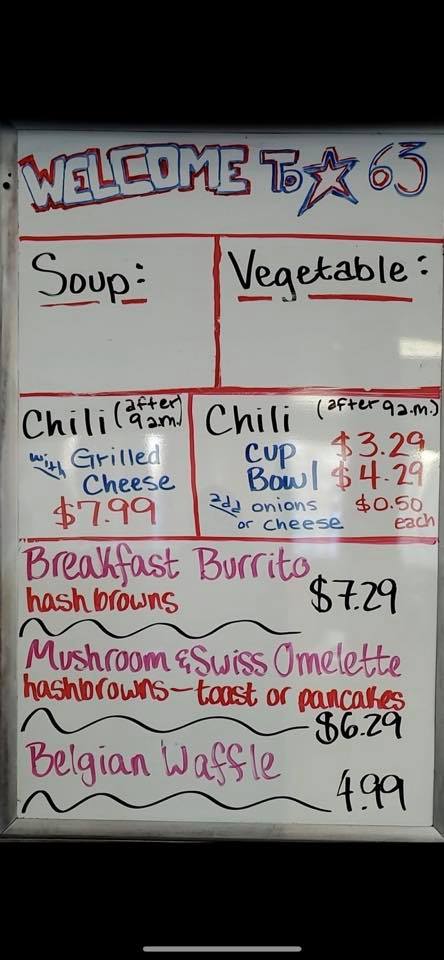 WELCOME To ☆ 63
Soup:
Vegetable:
Chili (after 9am)
with Grilled
Cheese
$7.99
Chili (after 9a.m.)
cup $3.29
Bowl $4.29
add onions $0.50
or cheese each
Breakfast Burrito
hashbrowns $7.29
Mushroom & Swiss Omelette
hashbrowns - toast or pancakes
$6.29
Belgian Waffle
4.99